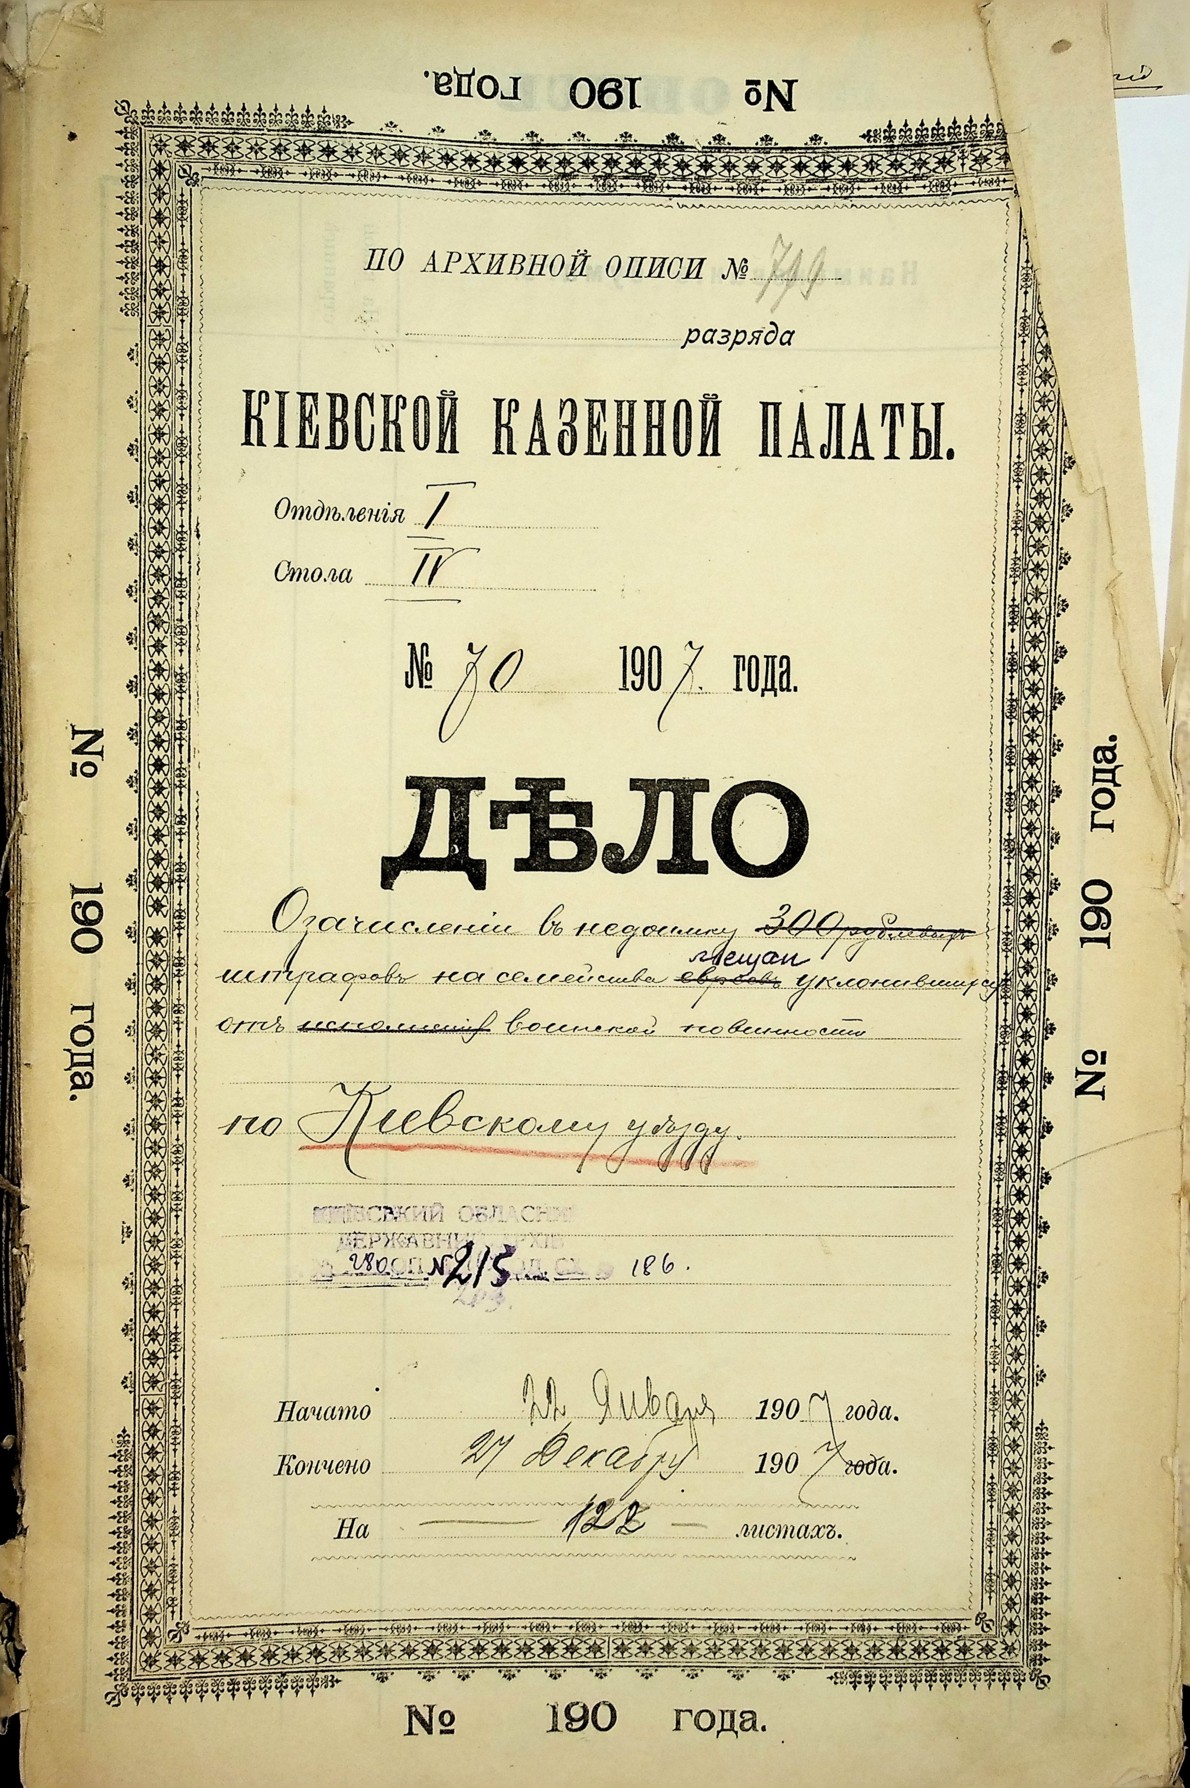 № 190 года.
по архивной описи № 799
разряда
КІЕВСКОЙ КАЗЕННОЙ ПАЛАТЫ.
Отдѣленія I
Стола IV
№ 70 1907 года.
ДѢЛО
О зачисленіи въ недоимку 300 рублевыхъ
мещан
штрафовъ на семейства евреевъ уклонившихся
отъ исполненія воинской повинности
по Кіевскому уѣзду.
КИЇВСЬКИЙ ОБЛАСНИЙ
ДЕРЖАВНИЙ АРХІВ
280 ОП. № 215 ОД. СХ. 186.
Начато 22 Января 1907 года.
Кончено 27 Декабря 1907 года.
На 122 листахъ.
№ 190 года.
№ 190 года.
№ 190 года.